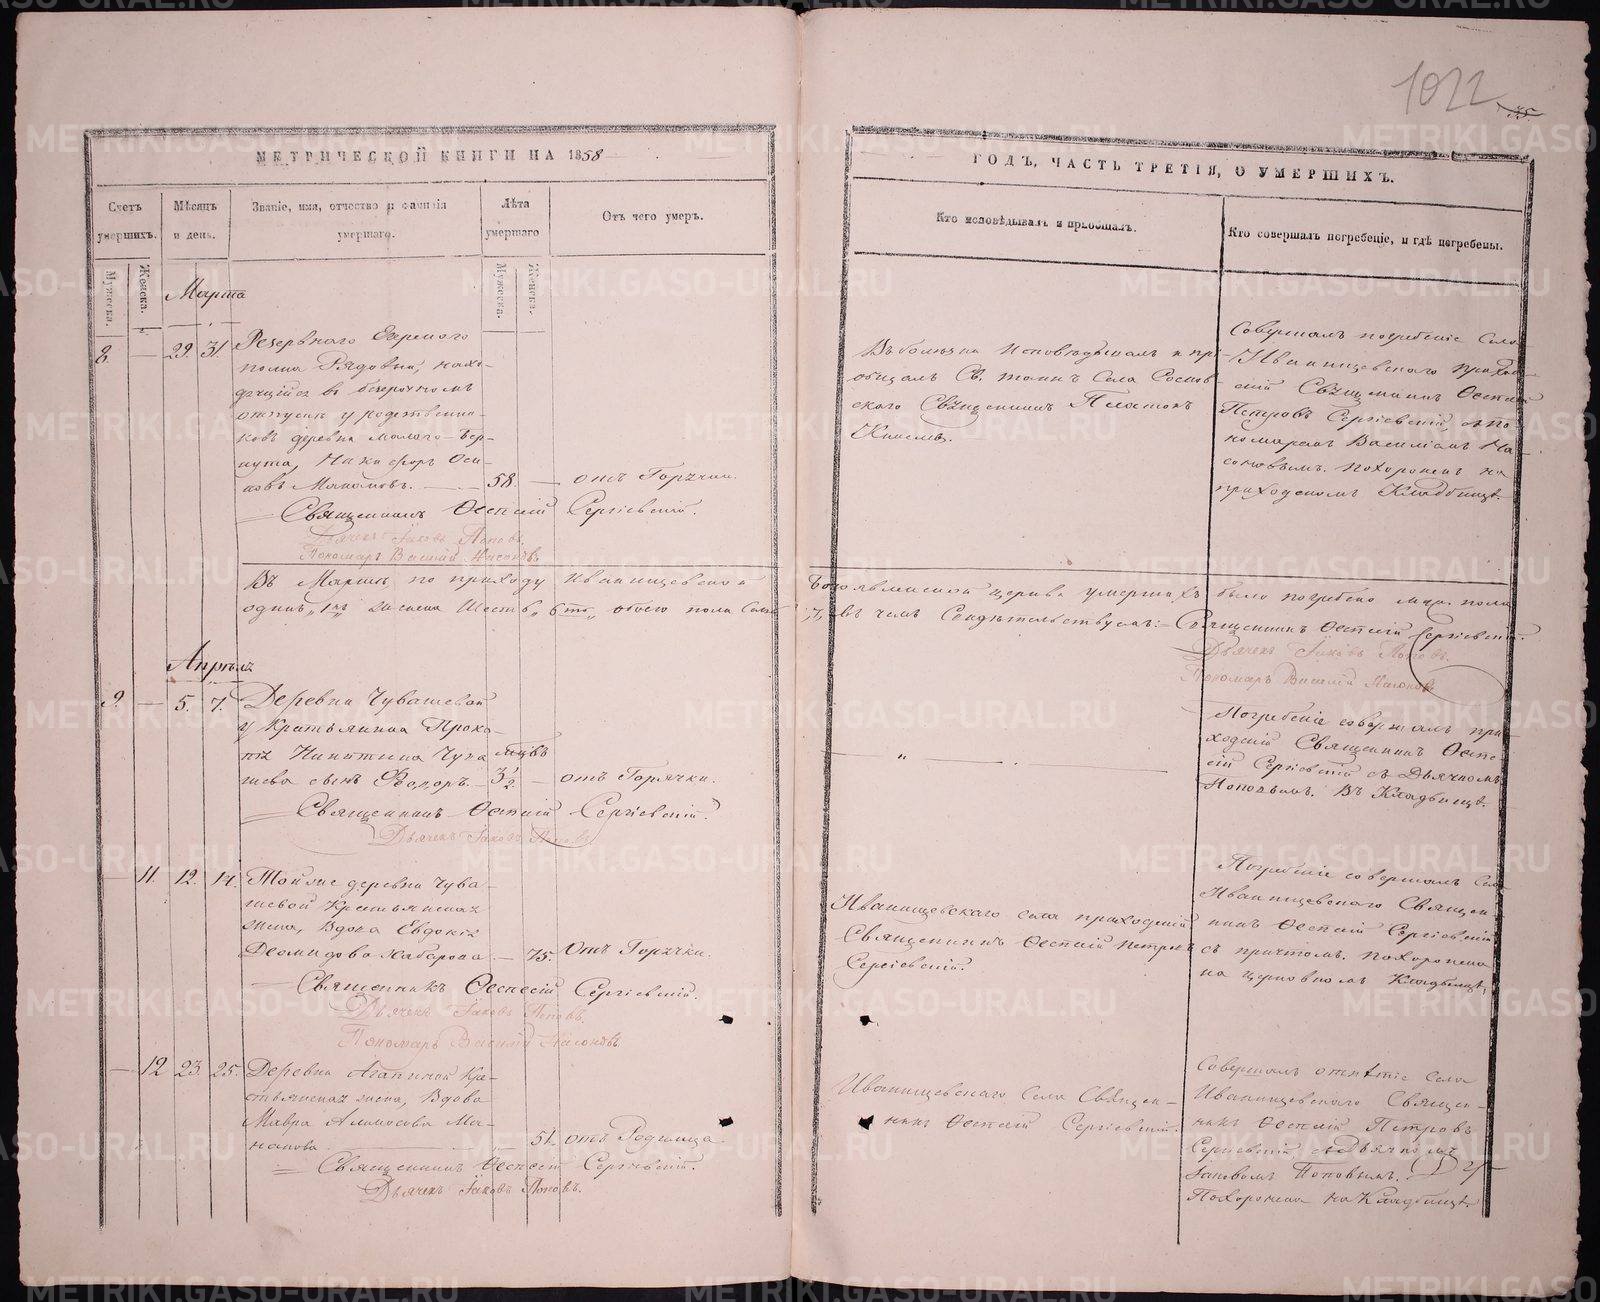 1022
35
МЕТРИЧЕСКОЙ КНИГИ НА 1858
ГОДЪ, ЧАСТЬ ТРЕТІЯ, О УМЕРШИХЪ.
Счетъ умершихъ.
Мѣсяцъ и день.
Званіе, имя, отчество и фамилія умершаго.
Лѣта умершаго
Отъ чего умеръ.
Кто исповѣдывалъ и пріобщалъ.
Кто совершалъ погребеніе, и гдѣ погребены.
Мужеска.
Женска.
Мужеска.
Женска.
Марта
8. — 29. 31.
Резервнаго Егерскаго
полка Рядовой, нахо-
дящійся въ безсрочномъ
отпуску у родственни-
ковъ деревни Малаго Бер-
кута, Никифоръ Оси-
повъ Макаловъ. — 58. — отъ Горячки.
Священникъ Ѳеспесій Сергіевскій.
Дьячекъ Іаковъ Поповъ.
Пономарь Василій Насоновъ.
Въ болѣзни исповѣдывалъ и прі-
общалъ Св. таинъ Села Соснов-
скаго Священникъ Платонъ
Совершалъ погребеніе Села
Иванищевскаго приход-
скій Священникъ Ѳеспесій
Петровъ Сергіевскій, съ По-
номаремъ Василіемъ На-
соновымъ. Похороненъ на
приходскомъ Кладбищѣ.
Въ Мартѣ по приходу Иванищевской Богоявленской церкви умершихъ было погребено муж. пола
одинъ „1ъ„ женска Шесть „6ть„ обоего пола Семь „7„ въ чемъ Свидѣтельствуемъ: — Священникъ Ѳеспесій Сергіевскій.
Дьячекъ Іаковъ Поповъ.
Пономарь Василій Насоновъ
Апрѣль
9. — 5. 7.
Деревни Чувашевой
у Крестьянина Проко-
пія Никитина Чува
шева сынъ Ѳедоръ. — мѣцвъ 3 1/2 — отъ Горячки.
Священникъ Ѳеспесій Сергіевскій.
Дьячекъ Іаковъ Поповъ
„
Погребеніе совершалъ при-
ходскій Священникъ Ѳеспе-
сій Сергіевскій съ Дьячкомъ
Поповымъ. Въ Кладбищѣ.
— 11. 12. 14.
Той же деревни Чува-
шевой Крестьянская
жена, Вдова Евдокія
Деомидова Хабарова — 75. Отъ Горячки.
Священникъ Ѳеспесій Сергіевскій.
Дьячекъ Іаковъ Поповъ.
Пономарь Василій Насоновъ.
Иванищевскаго села приходскій
Священникъ Ѳеспесій Петровъ
Сергіевскій.
Погребеніе совершалъ Села
Иванищевскаго Священ-
никъ Ѳеспесій Сергіевскій
съ причтомъ. Похоронена
на церковномъ Кладбищѣ.
— 12 23. 25.
Деревни Агапиной Кре-
стьянская жена, Вдова
Мавра
— 51. отъ Родимца.
Священникъ Ѳеспесій Сергіевскій.
Дьячекъ Іаковъ Поповъ.
Иванищевскаго Села Священ-
никъ Ѳеспесій Сергіевскій.
Совершалъ отпѣтіе Села
Иванищевскаго Священ-
никъ Ѳеспесій Петровъ
Сергіевскій съ Дьячкомъ
Іаковомъ Поповымъ.
Похоронена на Кладбищѣ.
METRIKI.GASO-URAL.RU